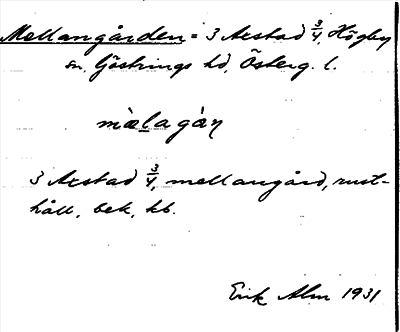 Mellangården = 3 Axstad 3/4, Högby
sn, Göstrings hd, Österg. l.
mælagàṇ
3 Axstad 3/4, mellangård, rust-
håll, bek, kb.
Erik Alm 1931